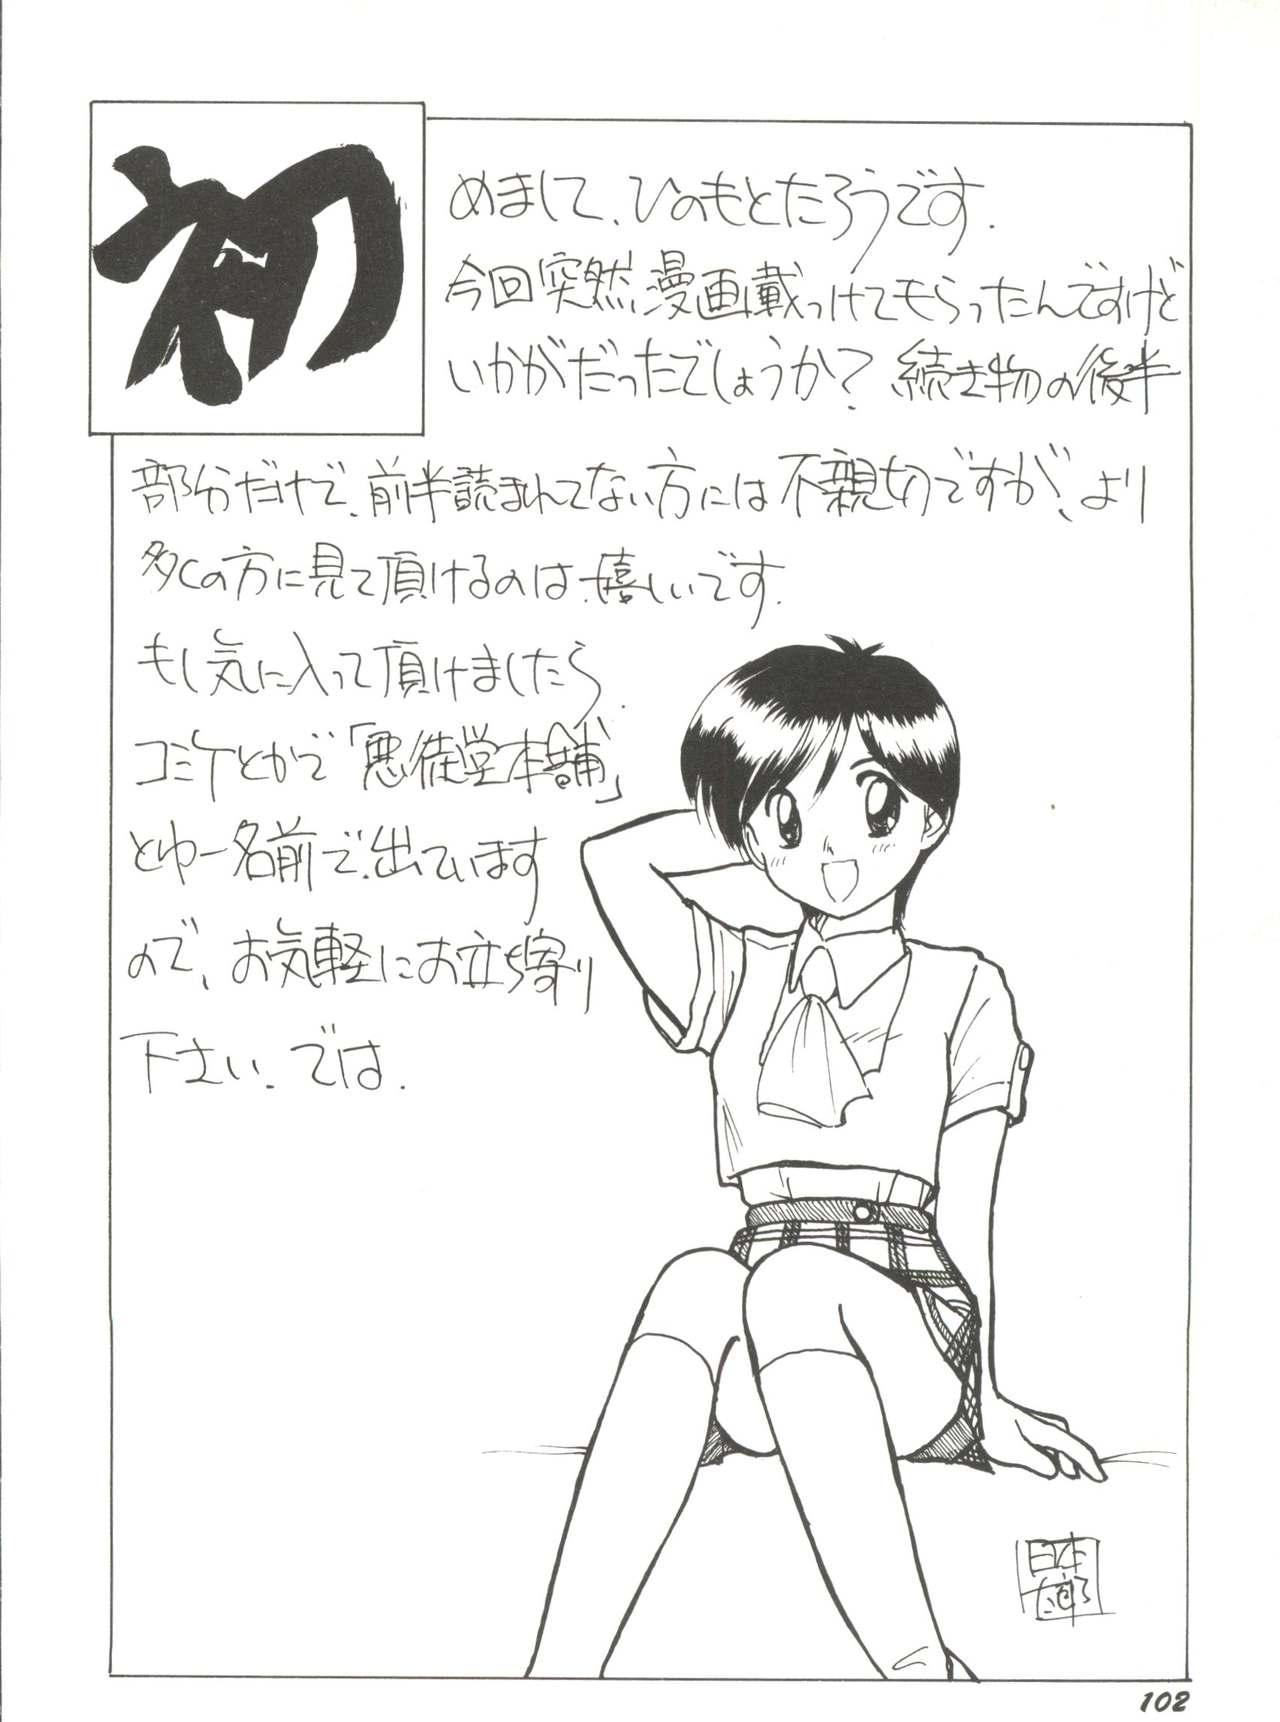 初めまして、ひのもとたろうです.
今回突然漫画載っけてもらったんですけど
いかがだったでしょうか? 続き物の後半
部分だけで、前半読まれてない方には不親切ですが、より
多くの方に見て頂けるのは嬉しいです.
もし気に入って頂けましたら、
コミケとかで「悪徒堂本舗」
とゆー名前で出ています
ので、お気軽にお立ち寄り
下さい.では.
日本
太郎
102